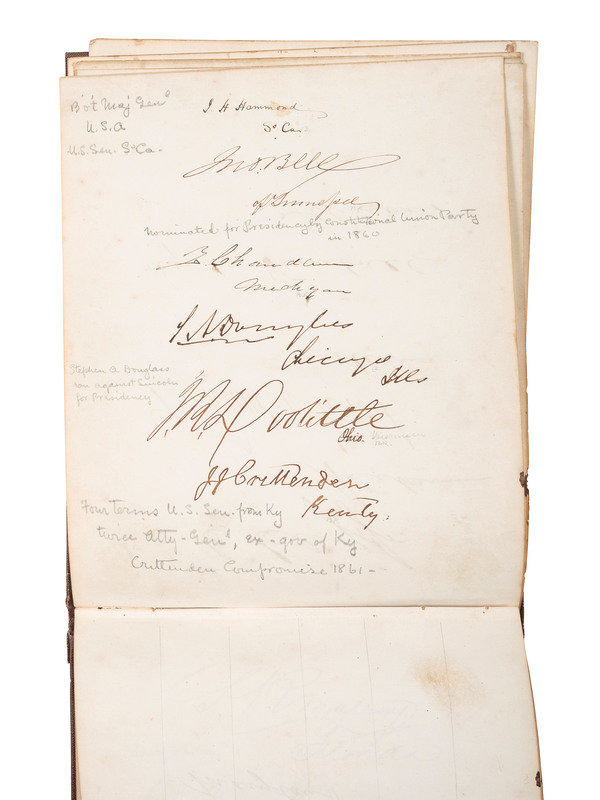 Bvt Maj Genl
U.S.A
U.S. Sen. So Ca.
J H Hammond
So Ca
Jno. Bell
of Tennessee
nominated for Presidency by Constitutional Union Party
in 1860
Z. Chandler
Michigan
S A Douglas
Chicago
Ills
Stephen A Douglass
ran against Lincoln
for Presidency
J. R. Doolittle
Ohio.
J J Crittenden
Kenty.
Four terms U.S. Sen. from Ky
twice Atty-Genl, ex-gov of Ky
Crittenden Compromise 1861-